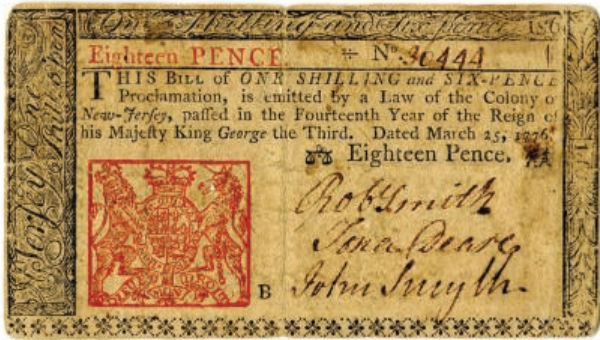 One Shilling and Six pence 1s6
Eighteen PENCE. ÷ No. 30444
THIS BILL of ONE SHILLING and SIX-PENCE
Proclamation, is emitted by a Law of the Colony o
New-Jerſey, paſſed in the Fourteenth Year of the Reign of
his Majeſty King George the Third. Dated March 25, 1776.
Eighteen Pence.
Jerſey One
Robt Smith
Jona Deare
John Smyth
B